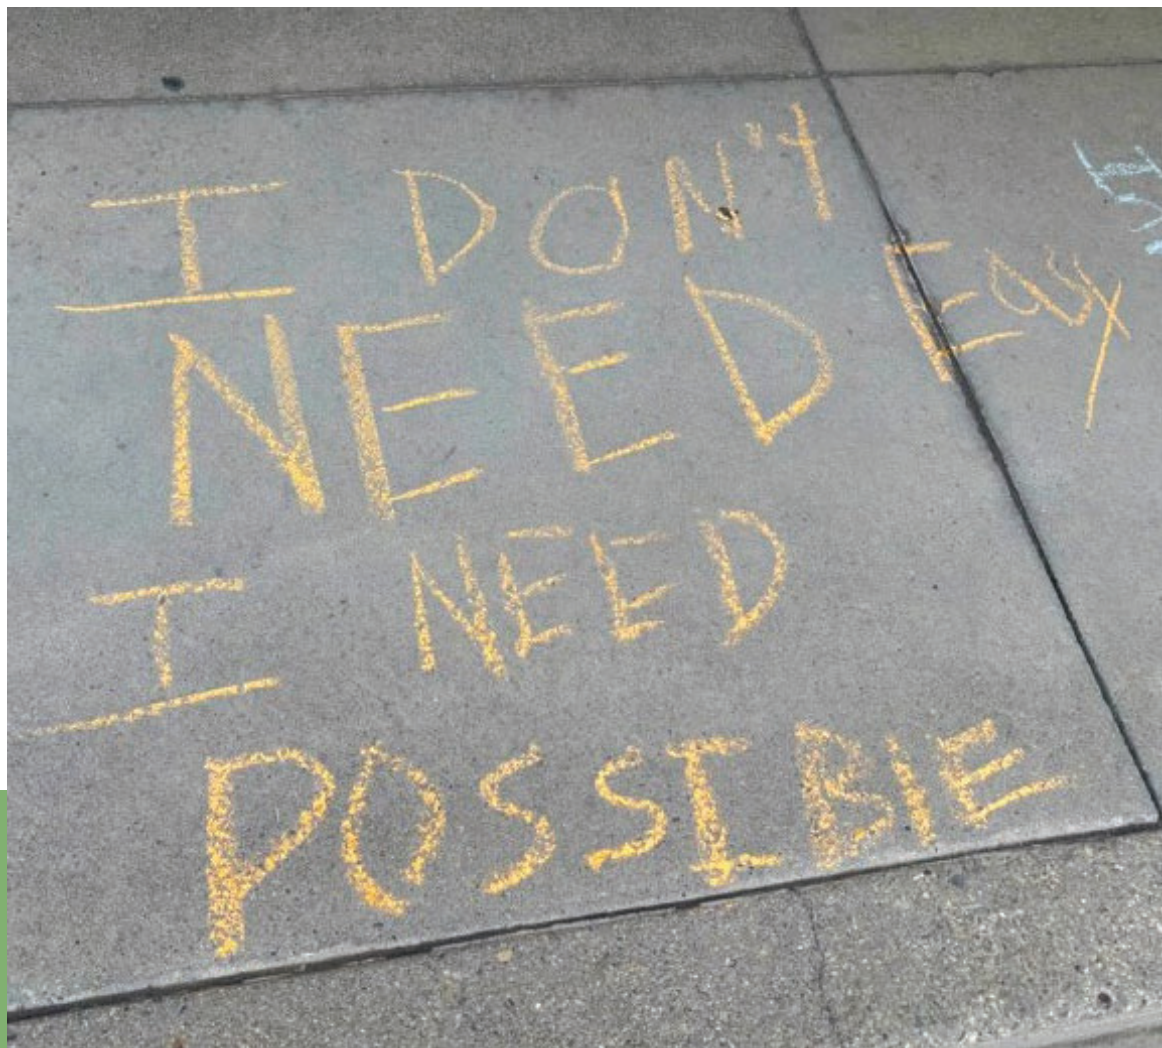 I DON't
NEED Easy
I NEED
POSSIBlE